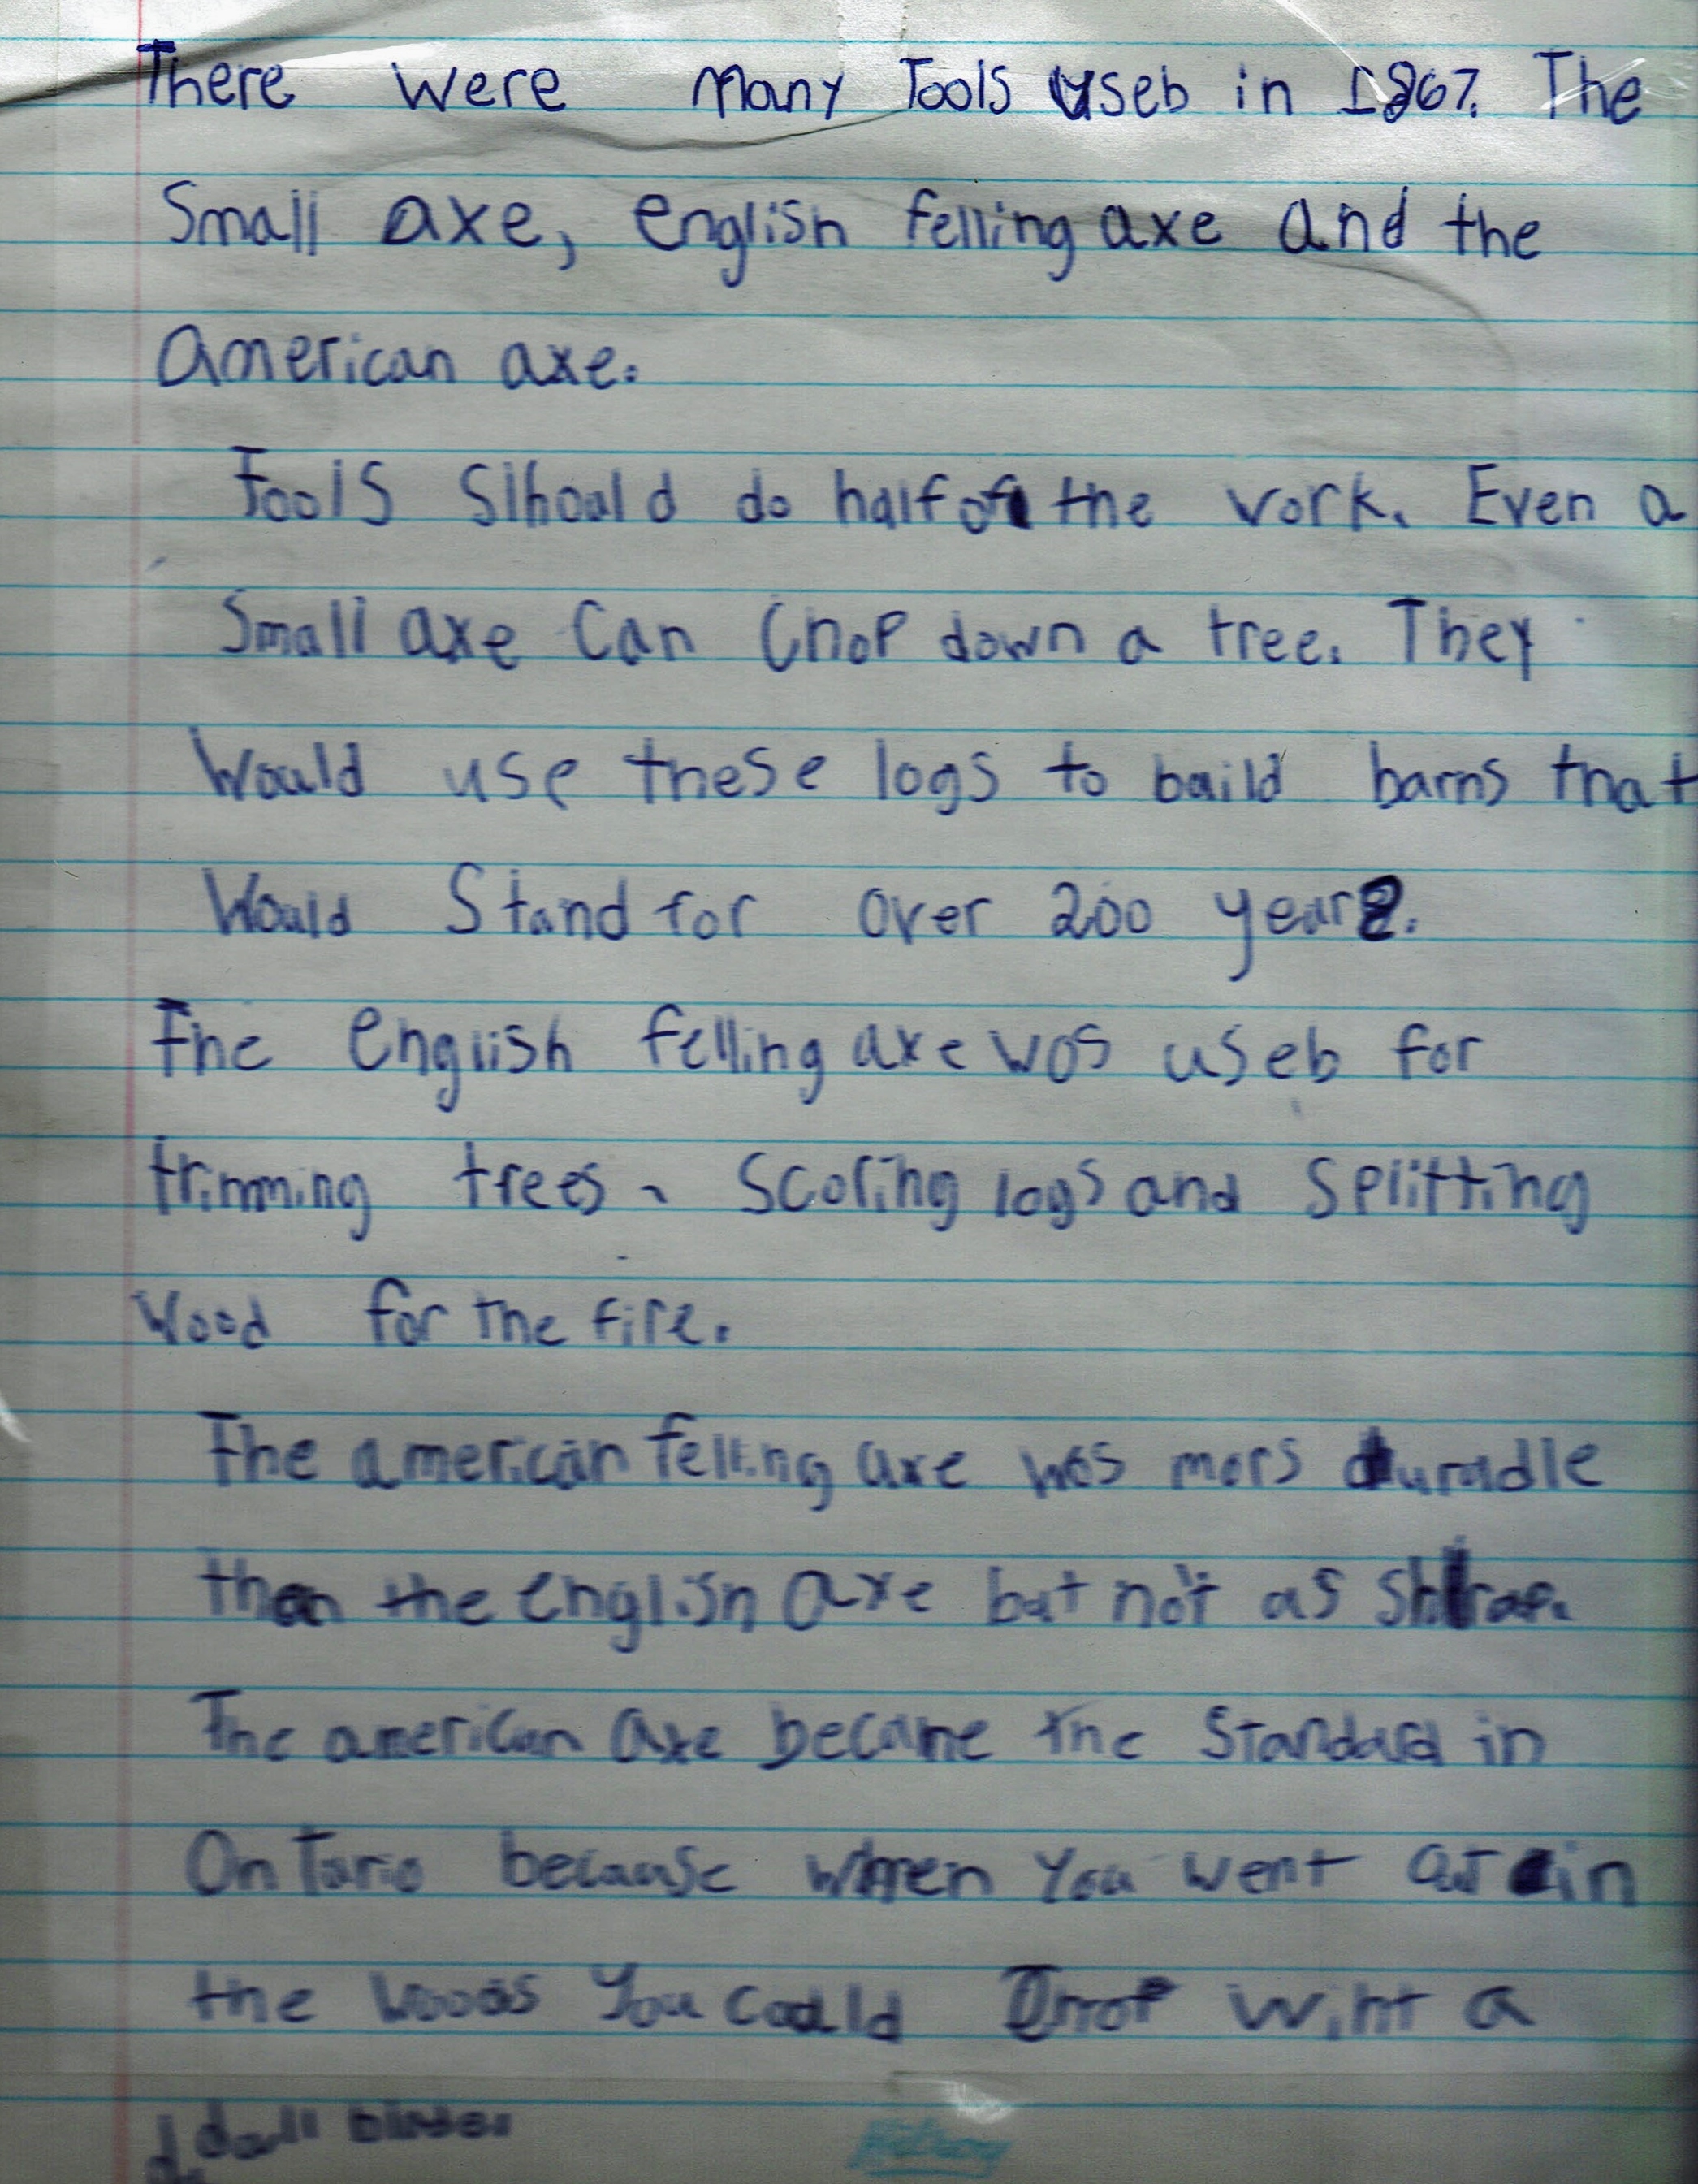 There were many Tools useb in 1867. The
Small axe, english felling axe and the
american axe.
Tools Slhould do half of the work. Even a
Small axe Can Chop down a tree. They
Would use these logs to build barns that
Would Stand for over 200 years.
The english felling axe wos useb for
trimming trees, Scoring logs and Splitting
Wood for the fire.
The american felling axe wos mors duradle
then the english axe but not as
The american axe became the Standard in
OnTario because when You went out in
the Woods You Could wiht a
dall